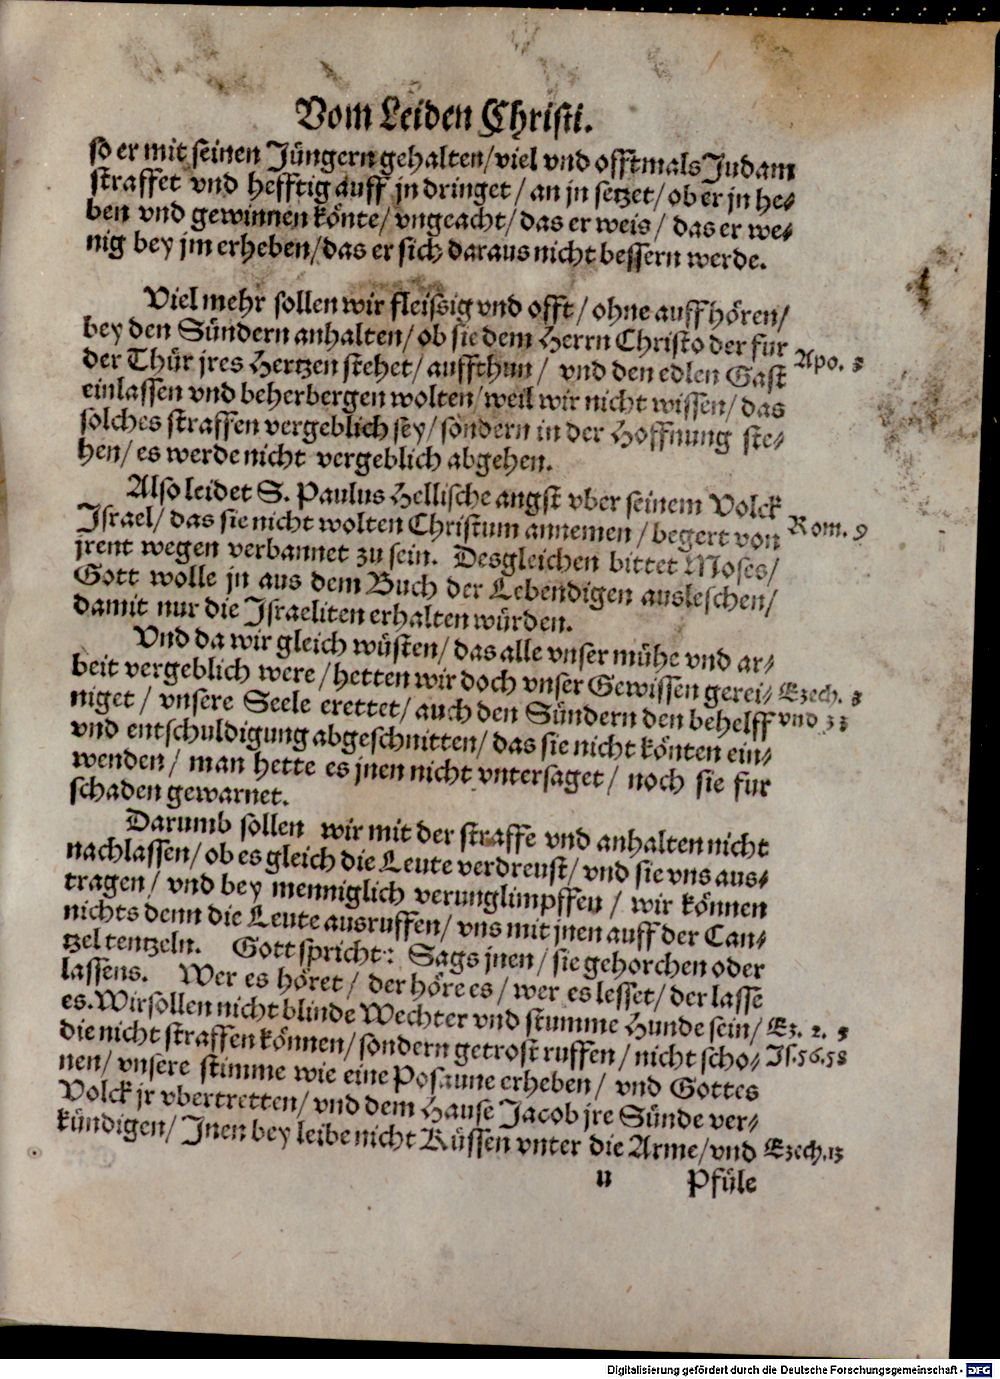 Vom Leiden Christi.
so er mit seinen Jüngern gehalten/viel vnd offtmals Judam
straffet vnd hefftig auff jn dringet/ an jn setzet/ ob er jn he-
ben vnd gewinnen könte/ vngeacht/ das er weis/ das er we-
nig bey jm erheben/das er sich daraus nicht bessern werde.
Viel mehr sollen wir fleissig vnd offt/ ohne auffhören/
bey den Sündern anhalten/ ob sie dem Herrn Christo der fur
der Thür jres Hertzen stehet/ auffthun/ vnd den edlen Gast
Apo. 3
einlassen vnd beherbergen wolten/ weil wir nicht wissen/ das
solches straffen vergeblich sey/ sondern in der Hoffnung ste-
hen/ es werde nicht vergeblich abgehen.
Also leidet S. Paulus Hellische angst vber seinem Volck
Israel/ das sie nicht wolten Christum annemen/ begert von
Rom. 9
jrent wegen verbannet zu sein. Desgleichen bittet Moses/
Gott wolle jn aus dem Buch der Lebendigen ausleschen/
damit nur die Israeliten erhalten würden.
Vnd da wir gleich wüsten/ das alle vnser mühe vnd ar-
beit vergeblich were/ hetten wir doch vnser Gewissen gerei-
Ezech. 3
niget/ vnsere Seele erettet/ auch den Sündern den behelff
vnd 33
vnd entschuldigung abgeschnitten/ das sie nicht könten ein-
wenden/ man hette es jnen nicht vntersaget/ noch sie fur
schaden gewarnet.
Darumb sollen wir mit der straffe vnd anhalten nicht
nachlassen/ ob es gleich die Leute verdreust/ vnd sie vns aus-
tragen/ vnd bey menniglich verunglimpffen/ wir können
nichts denn die Leute ausruffen/ vns mit jnen auff der Can-
tzel tentzeln. Gott spricht: Sags jnen/ sie gehorchen oder
lassens. Wer es höret/ der höre es/ wer es lesset/ der lasse
es. Wir sollen nicht blinde Wechter vnd stumme Hunde sein/
Ez. 2. 3
die nicht straffen können/ sondern getrost ruffen/ nicht scho-
Js. 56. 58
nen/ vnsere stimme wie eine Posaune erheben/ vnd Gottes
Volck jr vbertretten/ vnd dem Hause Jacob jre Sünde ver-
kündigen/ Jnen bey leibe nicht Küssen vnter die Arme/ vnd
Ezech. 13
u Pfüle
Digitalisierung gefördert durch die Deutsche Forschungsgemeinschaft - DFG